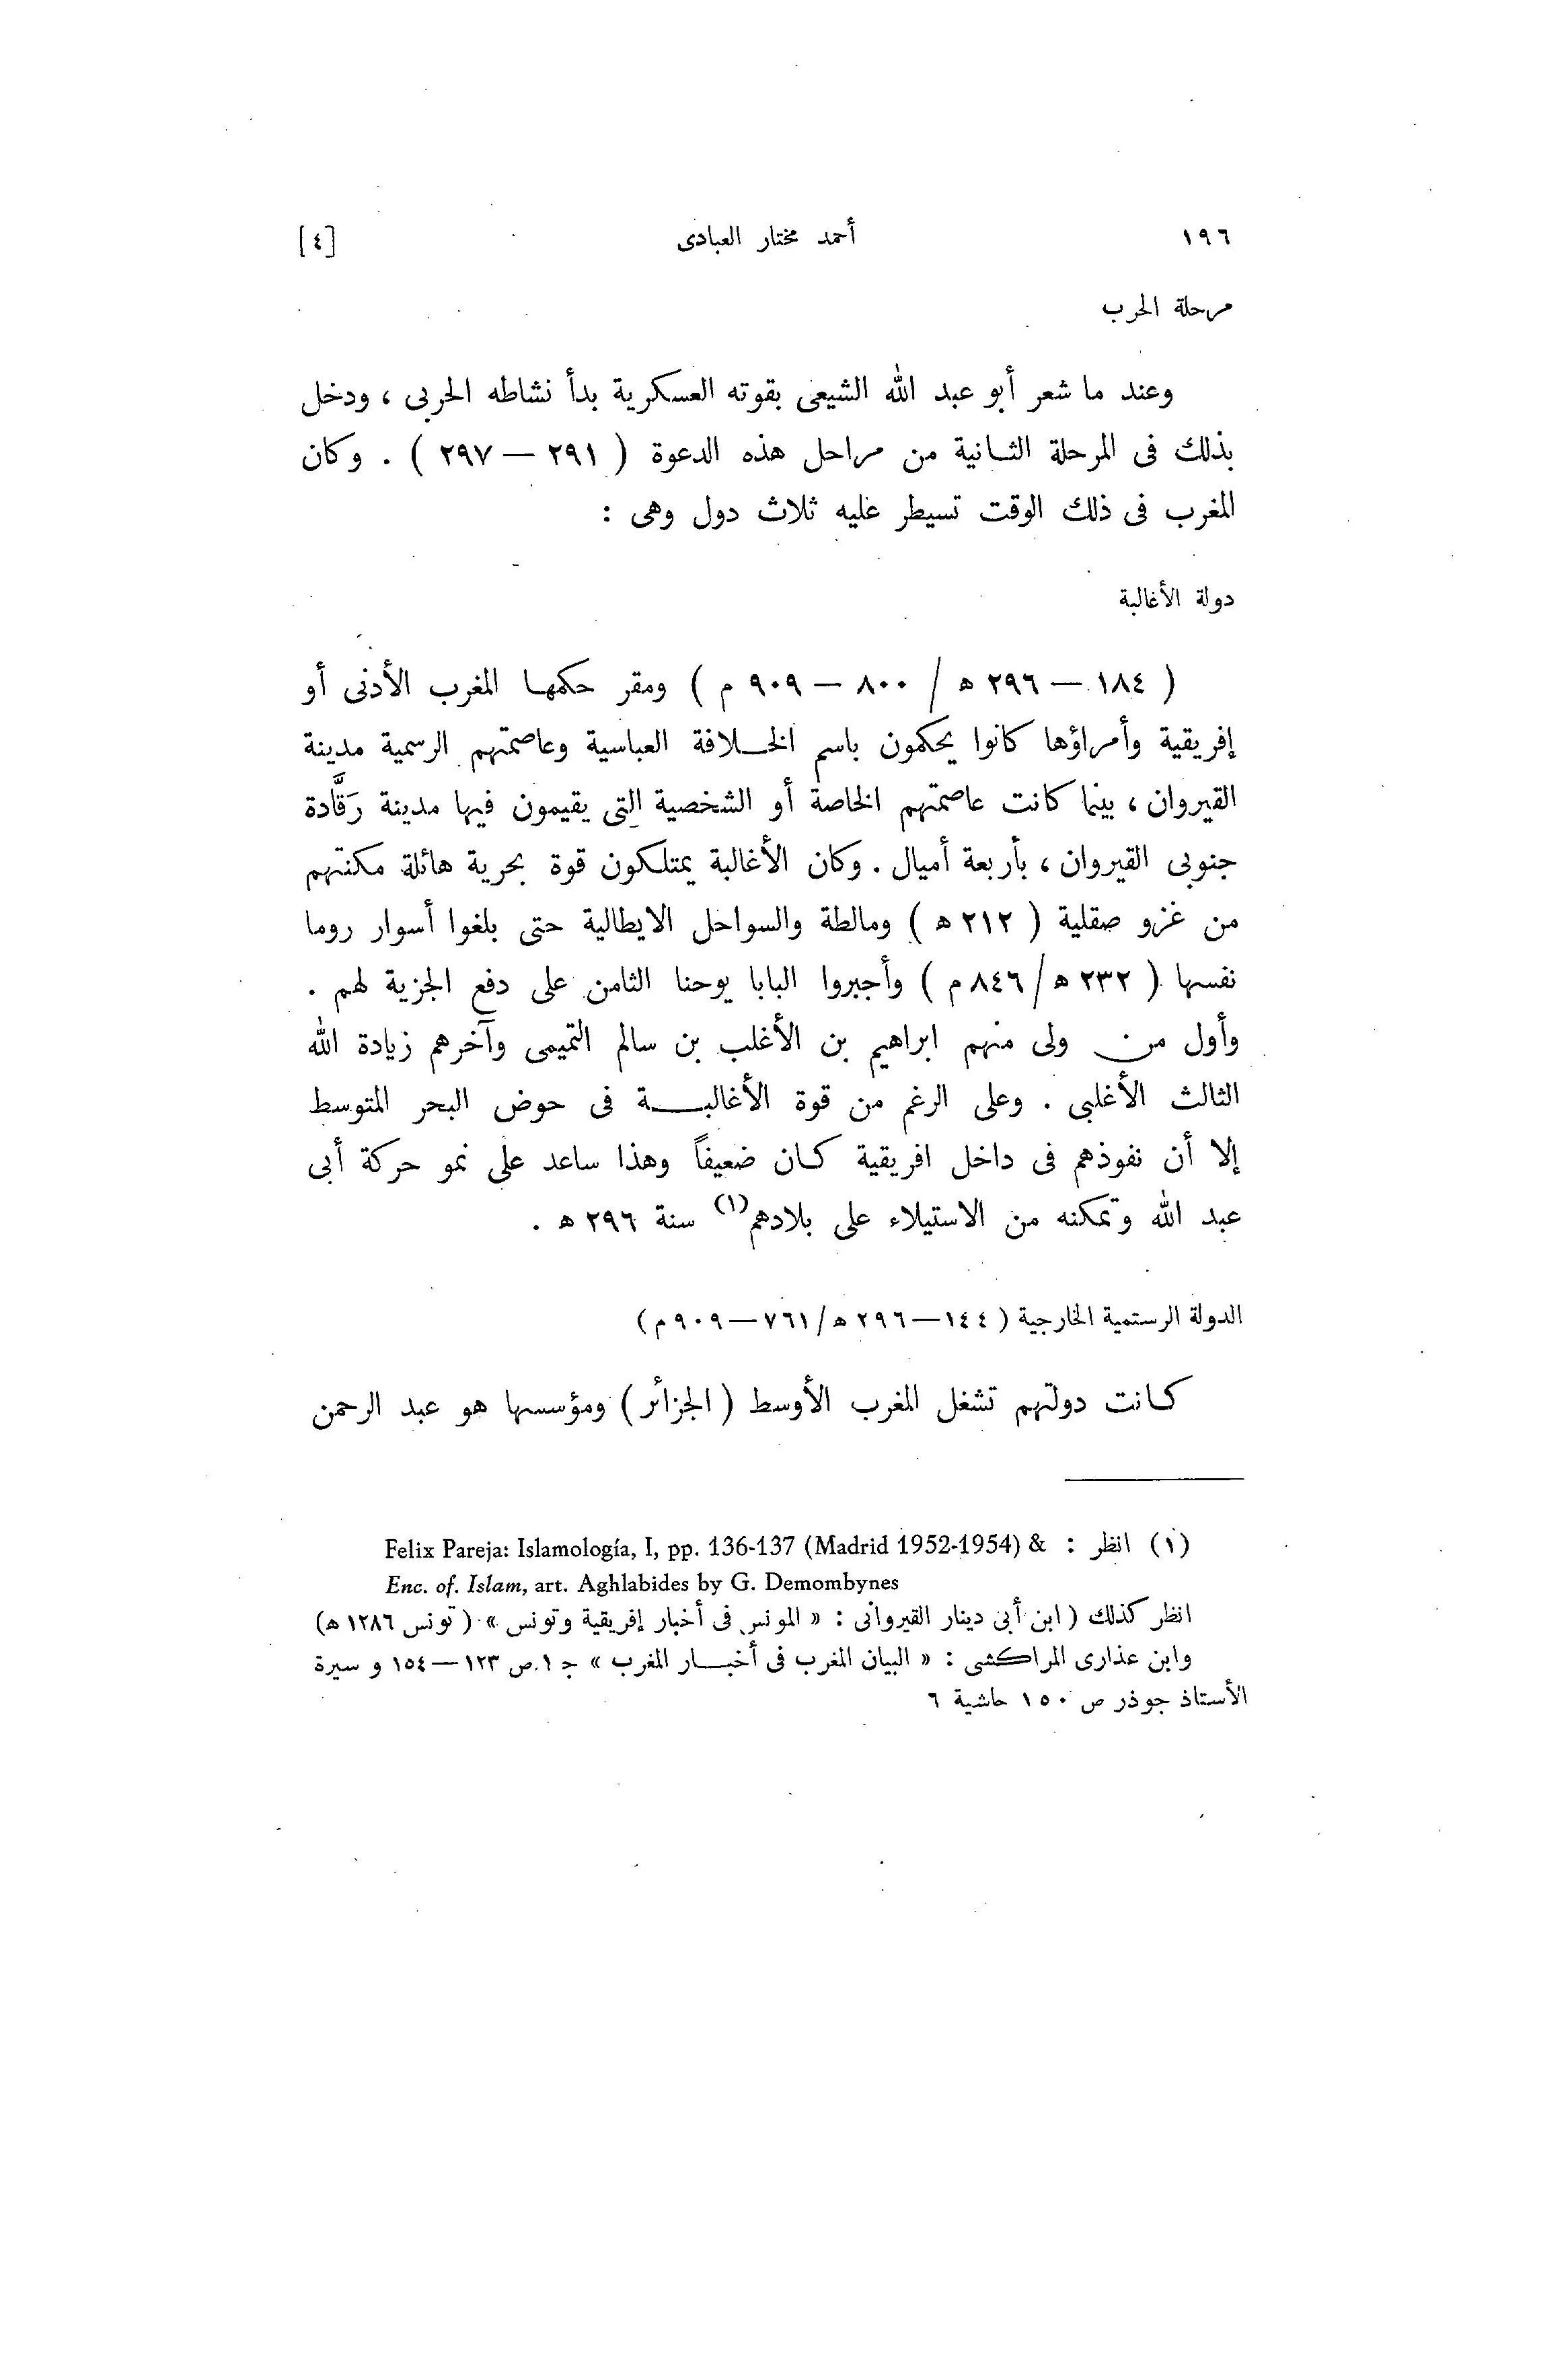 ١٩٦ أحمد مختار العبادى [٤]
مرحلة الحرب
وعند ما شعر أبو عبد الله الشيعى بقوته العسكرية بدأ نشاطه الحربى ، ودخل
بذلك فى المرحلة الثانية من مراحل هذه الدعوة ( ٢٩١ — ٢٩٧ ) . وكان
المغرب فى ذلك الوقت تسيطر عليه ثلاث دول وهى :
دولة الأغالبة
( ١٨٤ — ٢٩٦ ه / ٨٠٠ — ٩٠٩ م ) ومقر حكمها المغرب الأدنى أو
إفريقية وأمراؤها كانوا يحكمون باسم الخلافة العباسية وعاصمتهم الرسمية مدينة
القيروان ، بينما كانت عاصمتهم الخاصة أو الشخصية التى يقيمون فيها مدينة رَقَّادة
جنوبى القيروان ، بأربعة أميال . وكان الأغالبة يمتلكون قوة بحرية هائلة مكنتهم
من غزو صقلية ( ٢١٢ ه ) ومالطة والسواحل الايطالية حتى بلغوا أسوار روما
نفسها ( ٢٣٢ ه / ٨٤٦ م ) وأجبروا البابا يوحنا الثامن على دفع الجزية لهم .
وأول من ولى منهم ابراهيم بن الأغلب بن سالم التميمى وآخرهم زيادة الله
الثالث الأغلبى . وعلى الرغم من قوة الأغالبة فى حوض البحر المتوسط
إلا أن نفوذهم فى داخل افريقية كان ضعيفاً وهذا ساعد على نمو حركة أبى
عبد الله وتمكنه من الاستيلاء على بلادهم(١) سنة ٢٩٦ ه .
الدولة الرستمية الخارجية ( ١٤٤ — ٢٩٦ ه / ٧٦١ — ٩٠٩ م )
كانت دولتهم تشغل المغرب الأوسط ( الجزائر ) ومؤسسها هو عبد الرحمن
(١) انظر : Felix Pareja: Islamología, I, pp. 136-137 (Madrid 1952-1954) &
Enc. of. Islam, art. Aghlabides by G. Demombynes
انظر كذلك ( ابن أبى دينار القيروانى : « المونس فى أخبار إفريقية وتونس » ( تونس ١٢٨٦ ه )
وابن عذارى المراكشى : « البيان المغرب فى أخبار المغرب » ج ١ ص ١٢٣ — ١٥٤ و سيرة
الأستاذ جوذر ص ١٥٠ حاشية ٦